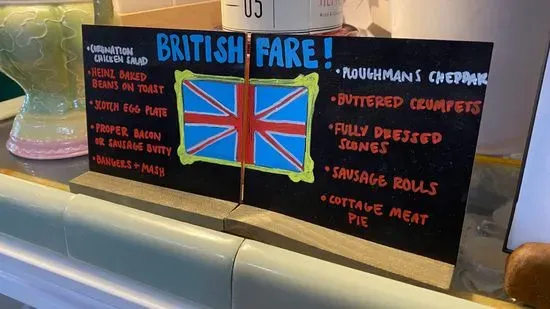 05
BRITISH FARE!
• CORONATION
CHICKEN SALAD
• HEINZ BAKED
BEANS ON TOAST
• SCOTCH EGG PLATE
• PROPER BACON
OR SAUSAGE BUTTY
• BANGERS + MASH
• PLOUGHMANS CHEDDAR
• BUTTERED CRUMPETS
• FULLY DRESSED
SCONES
• SAUSAGE ROLLS
• COTTAGE MEAT
PIE